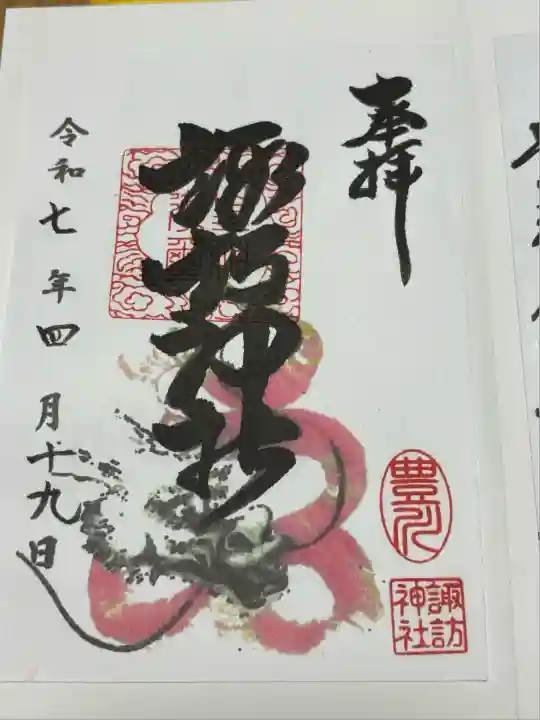 奉拝
諏訪神社
令和七年四月十九日
諏訪
神社